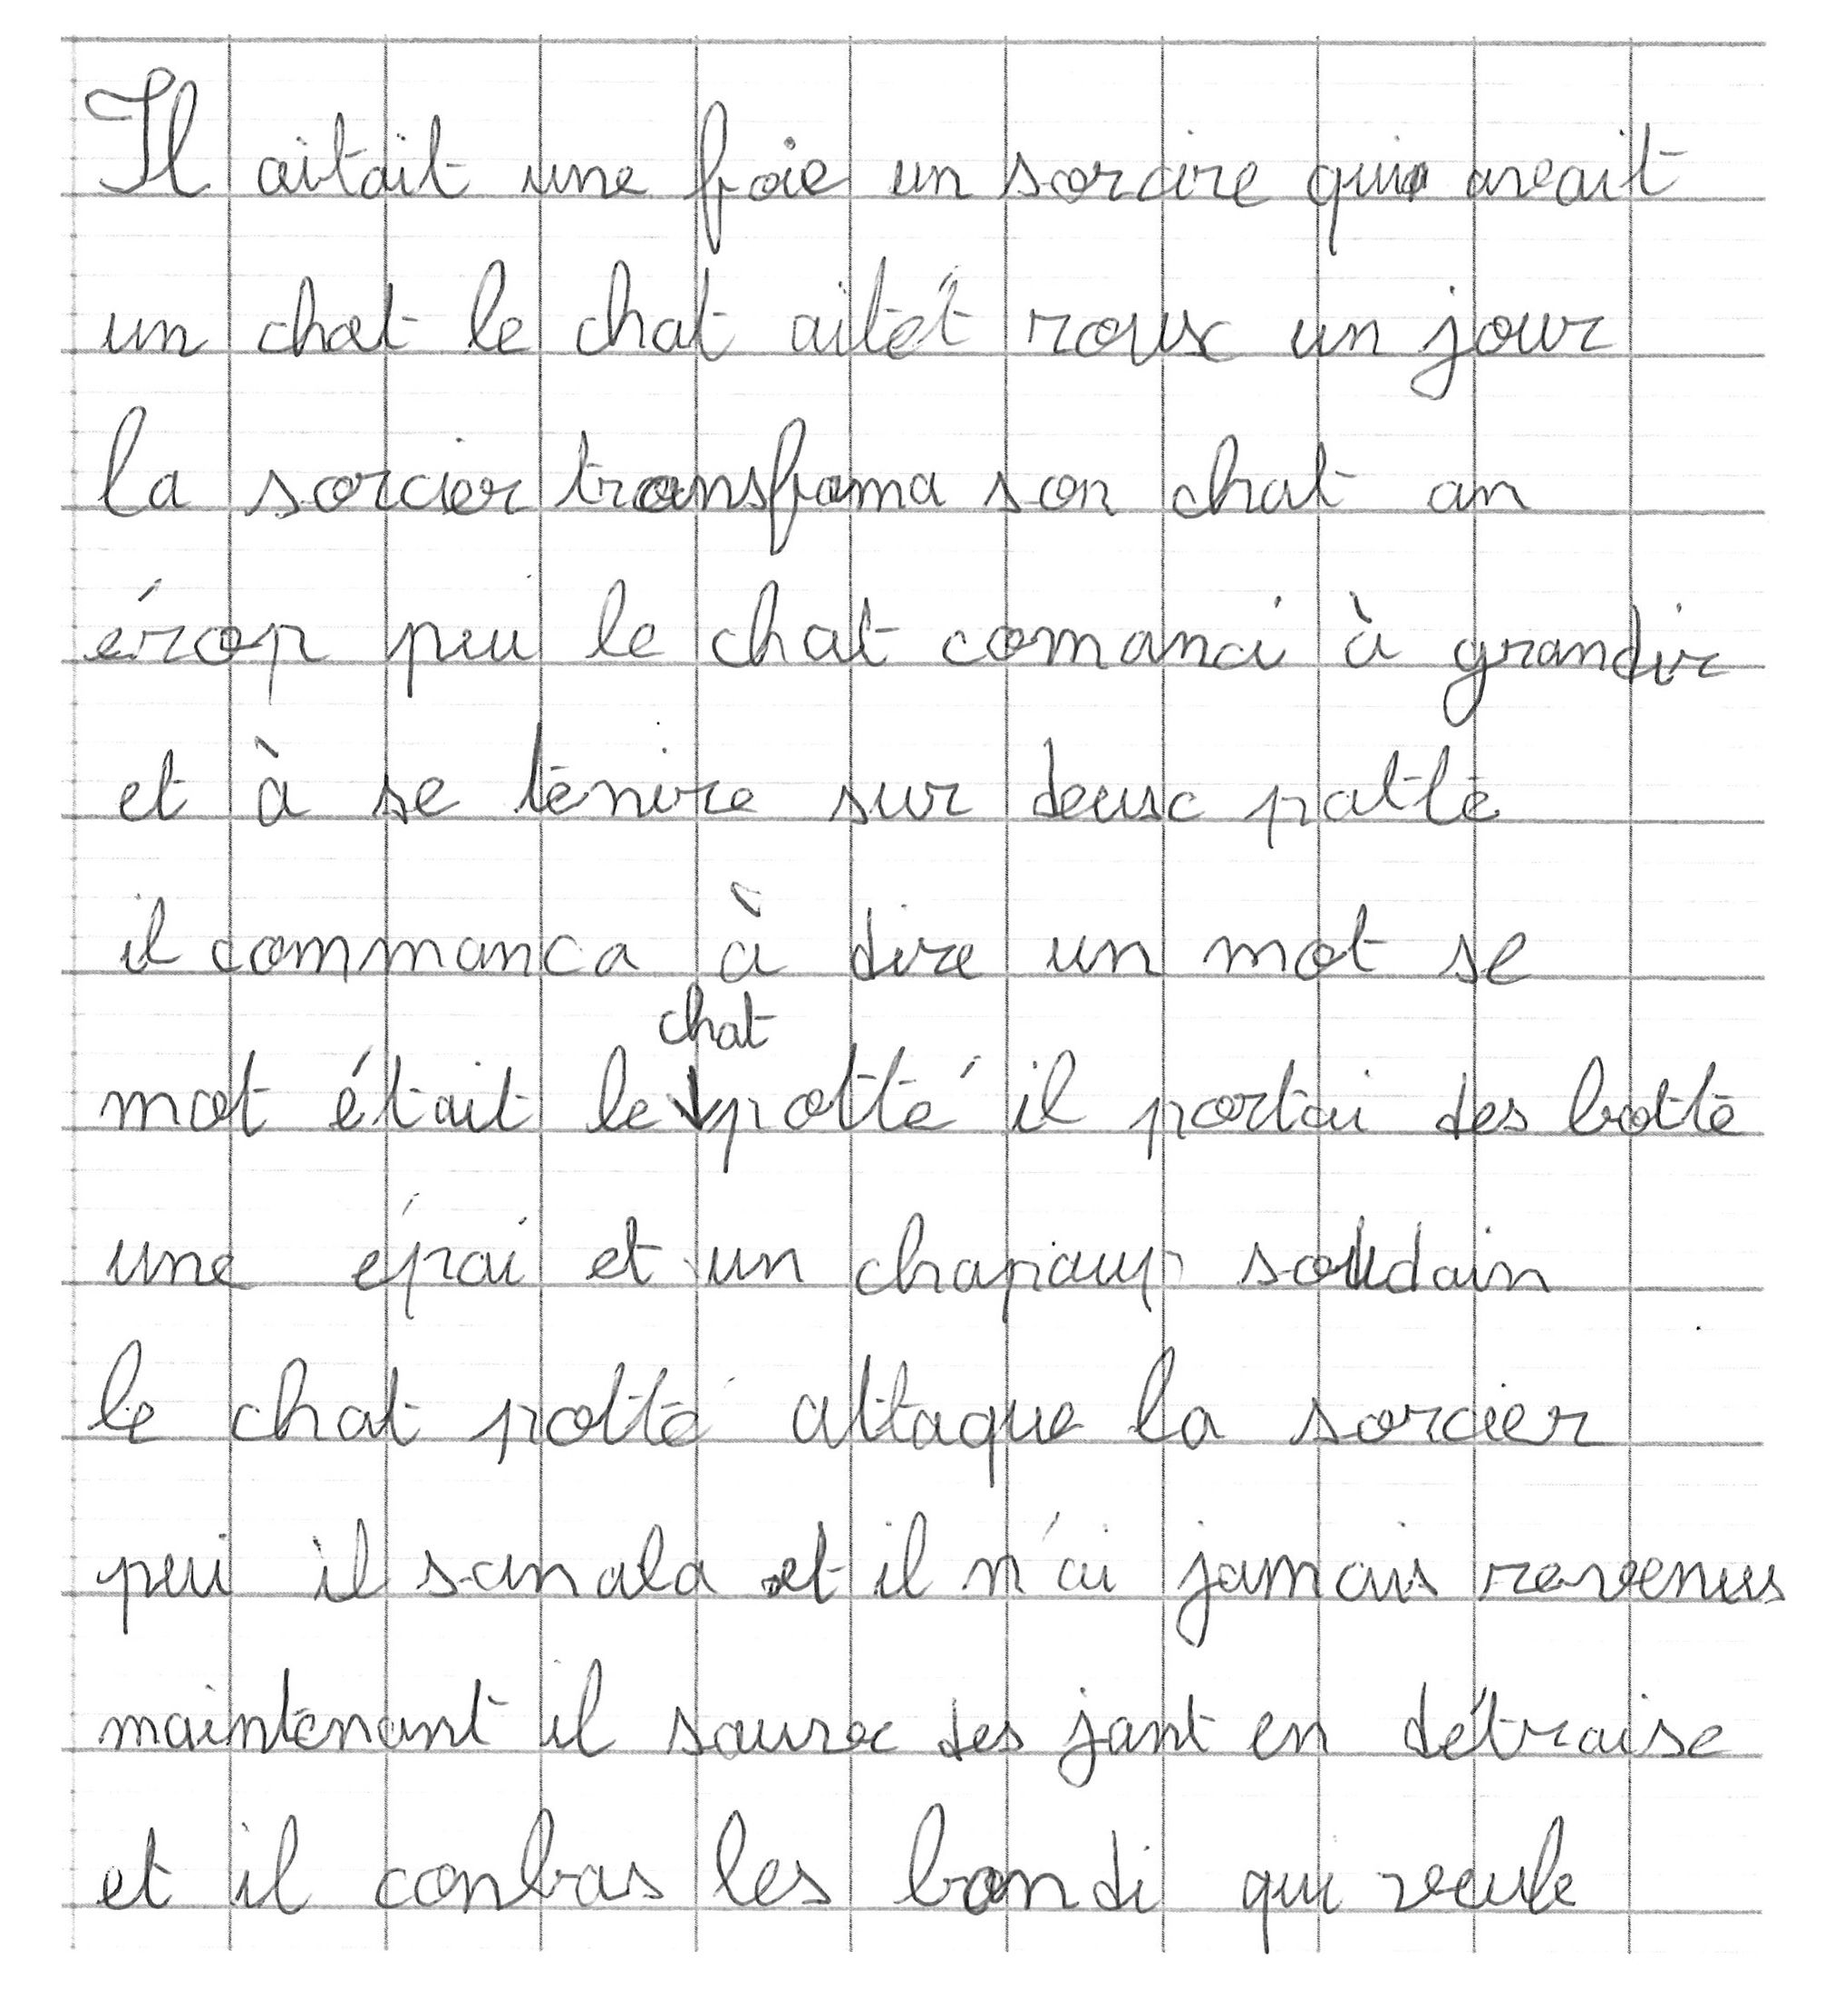 Il aitait une foie un sorcire qui aveait
un chat le chat aitét roux un jour
la sorcier transfoma son chat an
érop pui le chat comanci à grandir
et à se tenire sur deux patte
il commanca à dire un mot se
mot était le chat potté il portai des botte
une épai et un chapaup soudain
le chat potté attaque la sorcier
pui il sanala et il n'ai jamais revenus
maintenant il sauve des jant en détraise
et il conbas les bandi qui veule